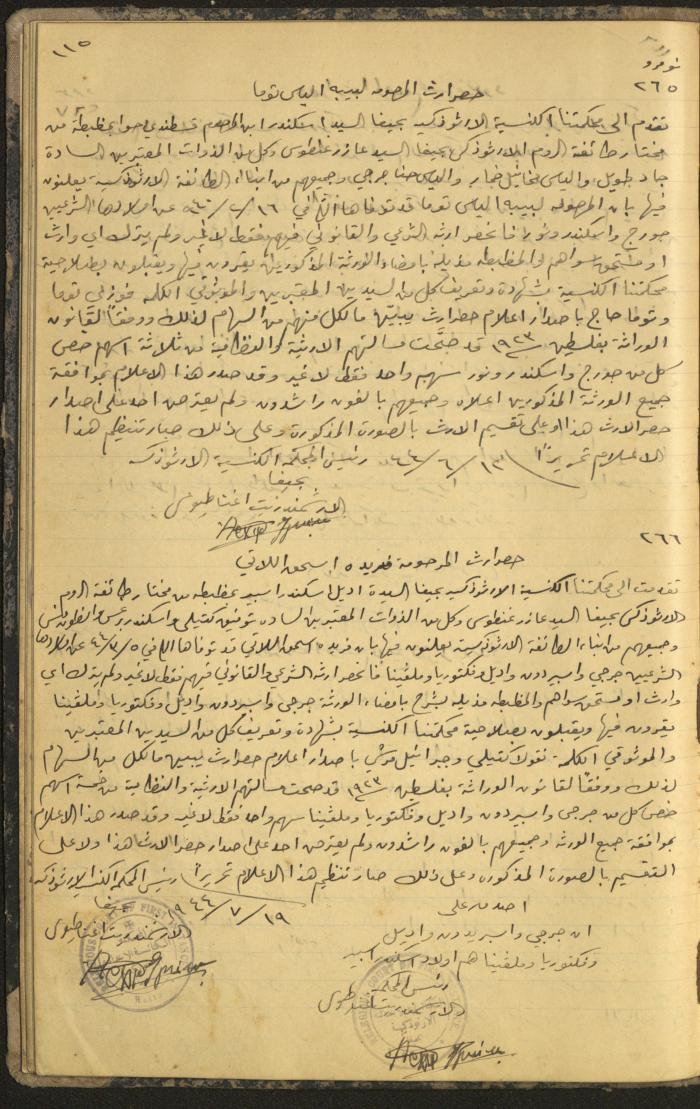 ١١٥
نومرو
٢٦٥
حصر ارث المرحومه لبيبه الياس توما
تقدم الى محكمتنا الكنسية الارثوذكسيه بحيفا السيد اسكندر ابن المرحوم قسطندي حوا بمظبطة من
مختار طائفة الروم الارثوذكس بحيفا السيد عازر غنطوس وكل من الذوات المعتبرين السادة
جاد طويل والياس مخائيل خبار والياس حنا جرجي وجميعهم من ابناء الطائفة الارثوذكسية يعلنون
فيها بان المرحومه لبيبه الياس توما قد توفاها الله في ١٦/٢/ عن اولادها الشرعيين
جورج واسكندر ونورا فانحصر ارثها الشرعي والقانوني فيهم فقط لا غير ولم يترك اي وارث
او مستحق سواهم والمظبطه مذيله بامضاء الورثة المذكورين يقرون فيها ويقبلون بصلاحية
محكمتنا الكنسية بشهادة وتعريف كل من السيدين المعتبرين والموثوقي الكلمه فوزي توما
وتوفا حاج باصدار اعلام حصر ارث يبين ما لكل منهم من السهام لذلك ووفقاً لقانون
الوراثة بفلسطين ١٩٢٣ قد صحت مسألتهم الارثية والنظامية من ثلاثة اسهم خص
كل من جورج واسكندر ونورا سهم واحد فقط لا غير وقد صدر هذا الاعلام بموافقة
جميع الورثة المذكورين اعلاه وجميعهم بالغون راشدون ولم يعترض احد على اصدار
حصر الارث هذا او على تقسيم الارث بالصورة المذكورة وعلى ذلك صار تنظيم هذا
الاعلام تحريراً ١٣/٦/٤٤ رئيس المحكمة الكنسية الارثوذكسية
بحيفا
الارشمندريت اغناطيوس
٢٦٦
حصر ارث المرحومة فريده اسحق اللاتي
تقدمت الى محكمتنا الكنسية الارثوذكسيه بحيفا السيدة اديل اسكندر اسبير بمظبطه من مختار طائفة الروم
الارثوذكس بحيفا السيد عازر غنطوس وكل من الذوات المعتبرين الساده توفيق كتيلي واسكندر
وجميعهم من ابناء الطائفة الارثوذكسية يعلنون فيها بان فريده اسحق اللاتي قد توفاها الله في ٥/ ٤٤/ عن اولادها
الشرعيين جرجي واسبيردون واديل وفكتوريا وملفينا فانحصر ارثها الشرعي والقانوني فيهم فقط لا غير ولم يترك اي
وارث او مستحق سواهم والمظبطه مذيله بشرح بامضاء الورثة جرجي واسبيردون واديل وفكتوريا وملفينا
يقرون فيها ويقبلون بصلاحية محكمتنا الكنسية بشهادة وتعريف كل من السيدين المعتبرين
والموثوقي الكلمة نقولا كتيلي وجبرائيل باصدار اعلام حصر ارث يبين ما لكل من السهام
لذلك ووفقاً لقانون الوراثة بفلسطين ١٩٢٣ قد صحت مسألتهم الارثية والنظامية من خمسة اسهم
خص كل من جرجي واسبيردون واديل وفكتوريا وملفينا سهم واحد فقط لا غير وقد صدر هذا الاعلام
بموافقة جميع الورثه وجميعهم بالغون راشدون ولم يعترض احد على اصدار حصر الارث هذا ولا على
التقسيم بالصورة المذكوره وعلى ذلك صار تنظيم هذا الاعلام تحريراً رئيس المحكمة الكنسية الارثوذكسية
١٩/٧/١٩٤٤ بحيفا
الارشمندريت اغناطيوس
اصدق على
ان جرجي واسبيردون واديل
وفكتوريا وملفينا هم اولاد اسكندر اسبير
رئيس المحكمة
الارشمندريت اغناطيوس